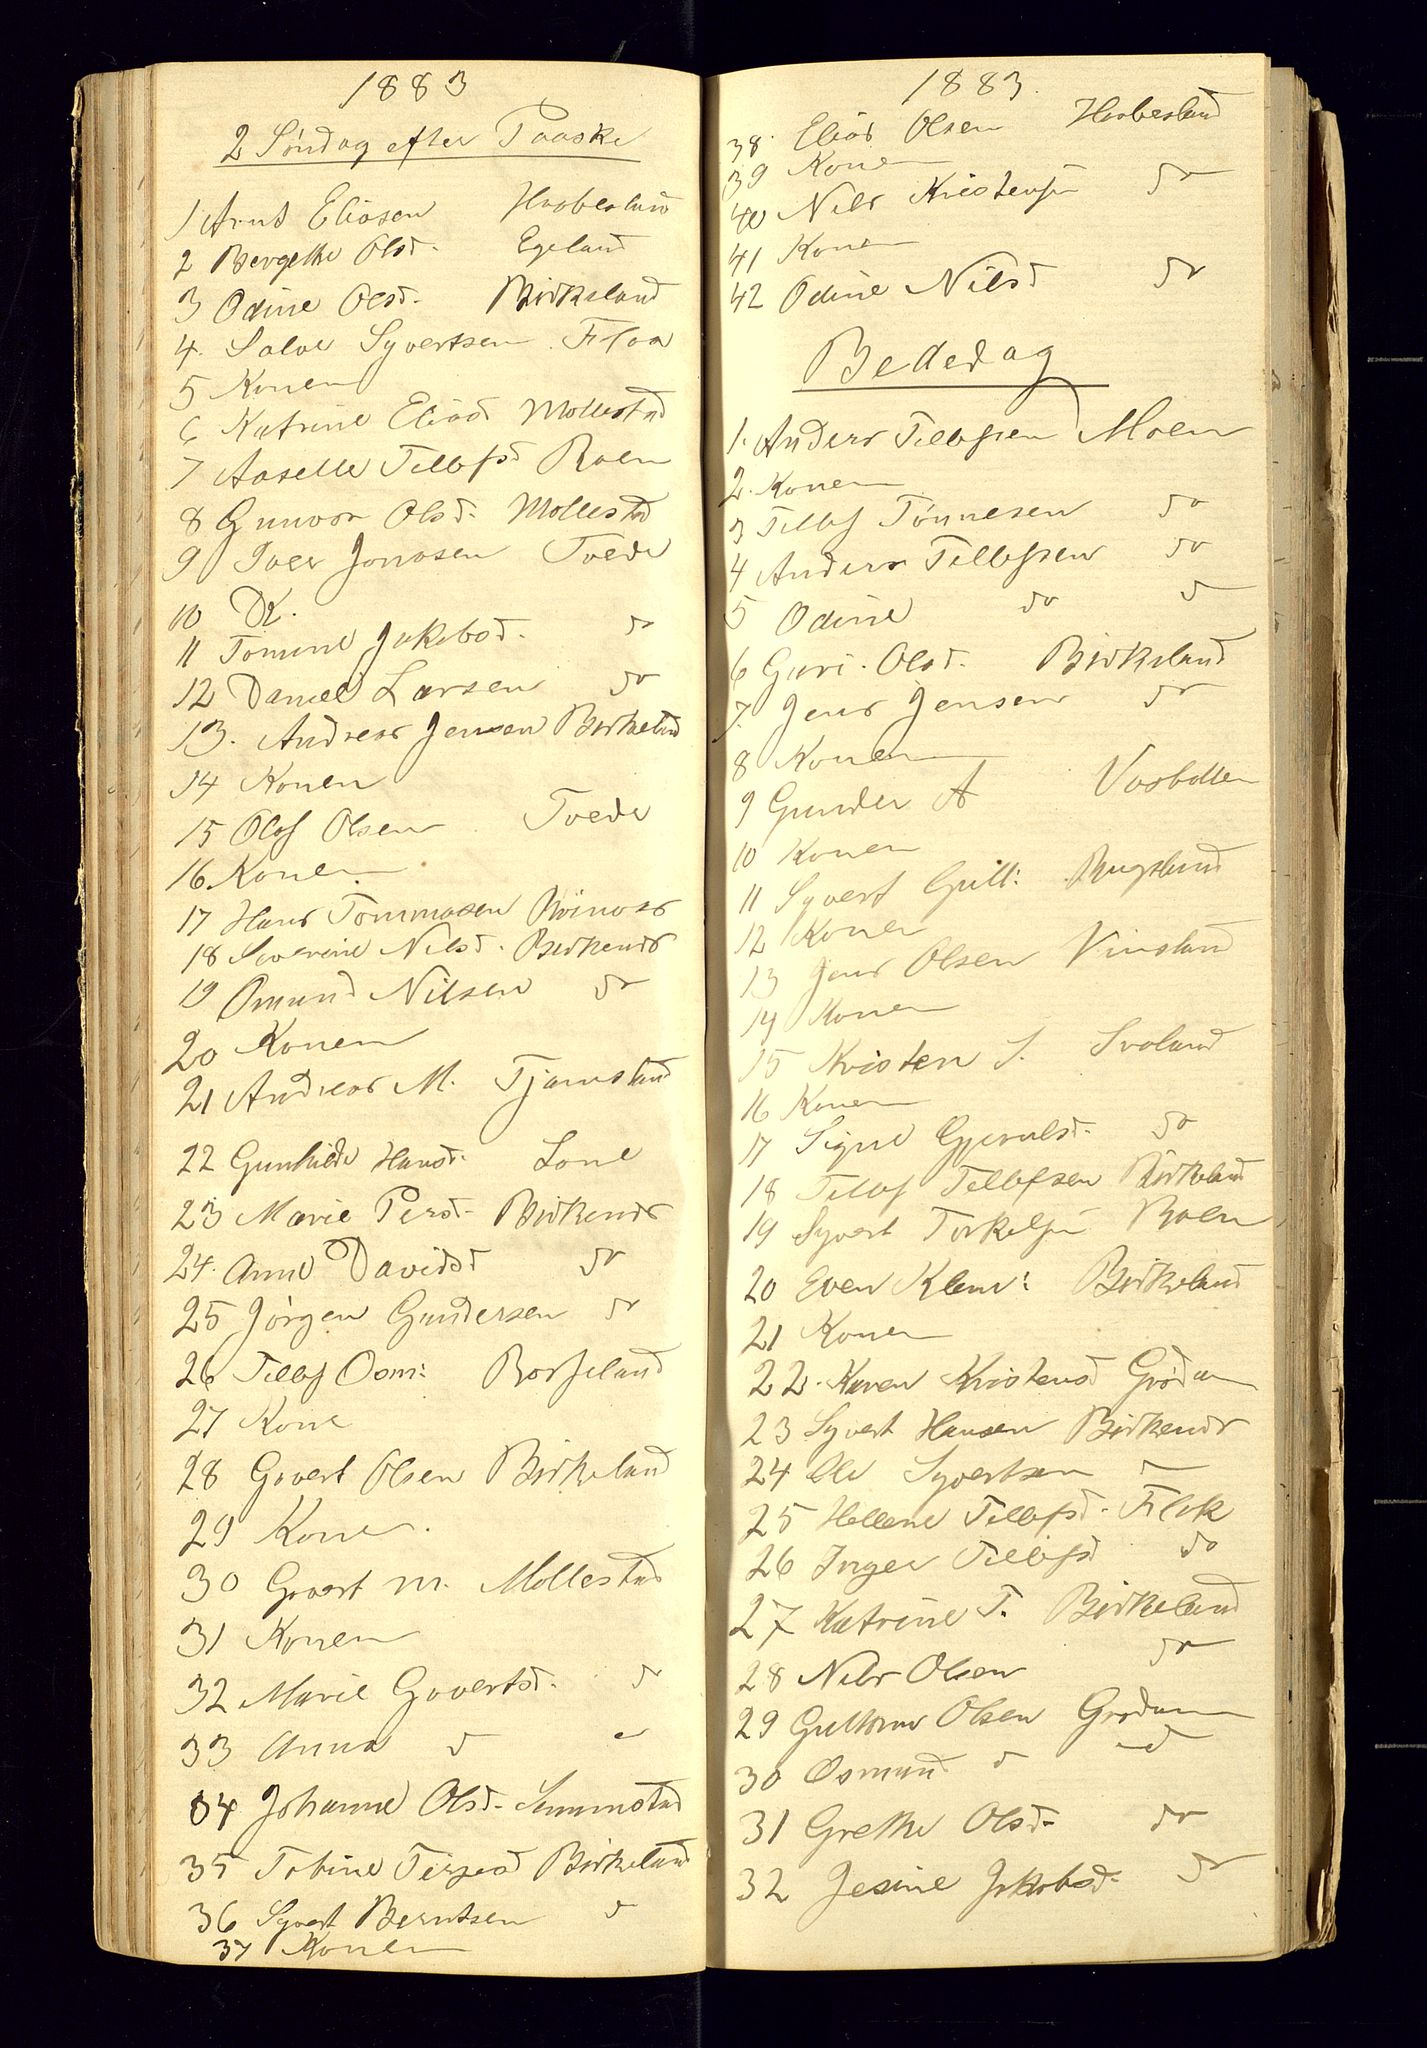 1883
2 Søndag efter Paaske
1 Arnt Eliasen Haabesland
2 Bergethe Olsd. Egeland
3 Odine Olsd. Birkeland
4. Salve Syvertsen Flaa
5 Konen
6 Katrine Eliasd Mollestad
7 Aaselle Tellefsd Roen
8 Gunvor Olsd. Mollestad
9 Iver Jonasen Tvede
10 DK.
11 Tomine Jakobsd. do
12 Daniel Larsen do
13. Andreas Jensen Birkeland
14 Konen
15 Olaf Olsen Tvede
16 Konen
17 Hans Tommasen
18 Severine Nilsd. Birkenes
19 Omund Nilsen do
20 Konen
21 Andreas M. Tjamsland
22 Gunhilde Hansd. Lone
23 Marie Persd. Birkenes
24. Anne Davidsd do
25 Jørgen Gundersen do
26 Tellef Osm: Borjeland
27 Kone
28 Govert Olsen Birkeland
29 Konen
30 Govert M. Mollestad
31 Konen
32 Marie Govertsd. do
33 Anna d
34 Johanne Olsd.
35 Tobine Terjesd Birkeland
36 Syvert Berntsen d
37 Konen
1883.
38. Elias Olsen Haabesland
39 Konen
40 Nils Kristensen do
41 Konen
42 Odine Nilsd do
Bededag
1. Anders Tellefsen Moen
2. Konen
3 Tellef Tønnesen do
4 Anders Tellefsen do
5 Odine do d
6 Guri Olsd. Birkeland
7. Jens Jensen do
8 Konen
9 Gunder A Vasbotten
10 Konen
11 Syvert Gutt: Rugsland
12 Konen
13 Jens Olsen Vinsland
14 Konen
15 Kristen S. Svaland
16 Konen
17 Signe Gjerulsd. do
18 Tellef Tellefsen Birkeland
19 Syvert Torkelsen Roen
20 Even Klem: Birkeland
21 Konen
22. Karen Kristensd Grødum
23 Syvert Hansen Birkenes
24 Ole Syvertsen —
25 Hellene Tellefsd. Flak
26 Inger Tellefsd do
27 Katrine T. Birkeland
28 Nils Olsen do
29 Guttorm Olsen Grødum
30 Osmund d d
31 Grethe Olsd. do
32 Jesine Jakobsd. do